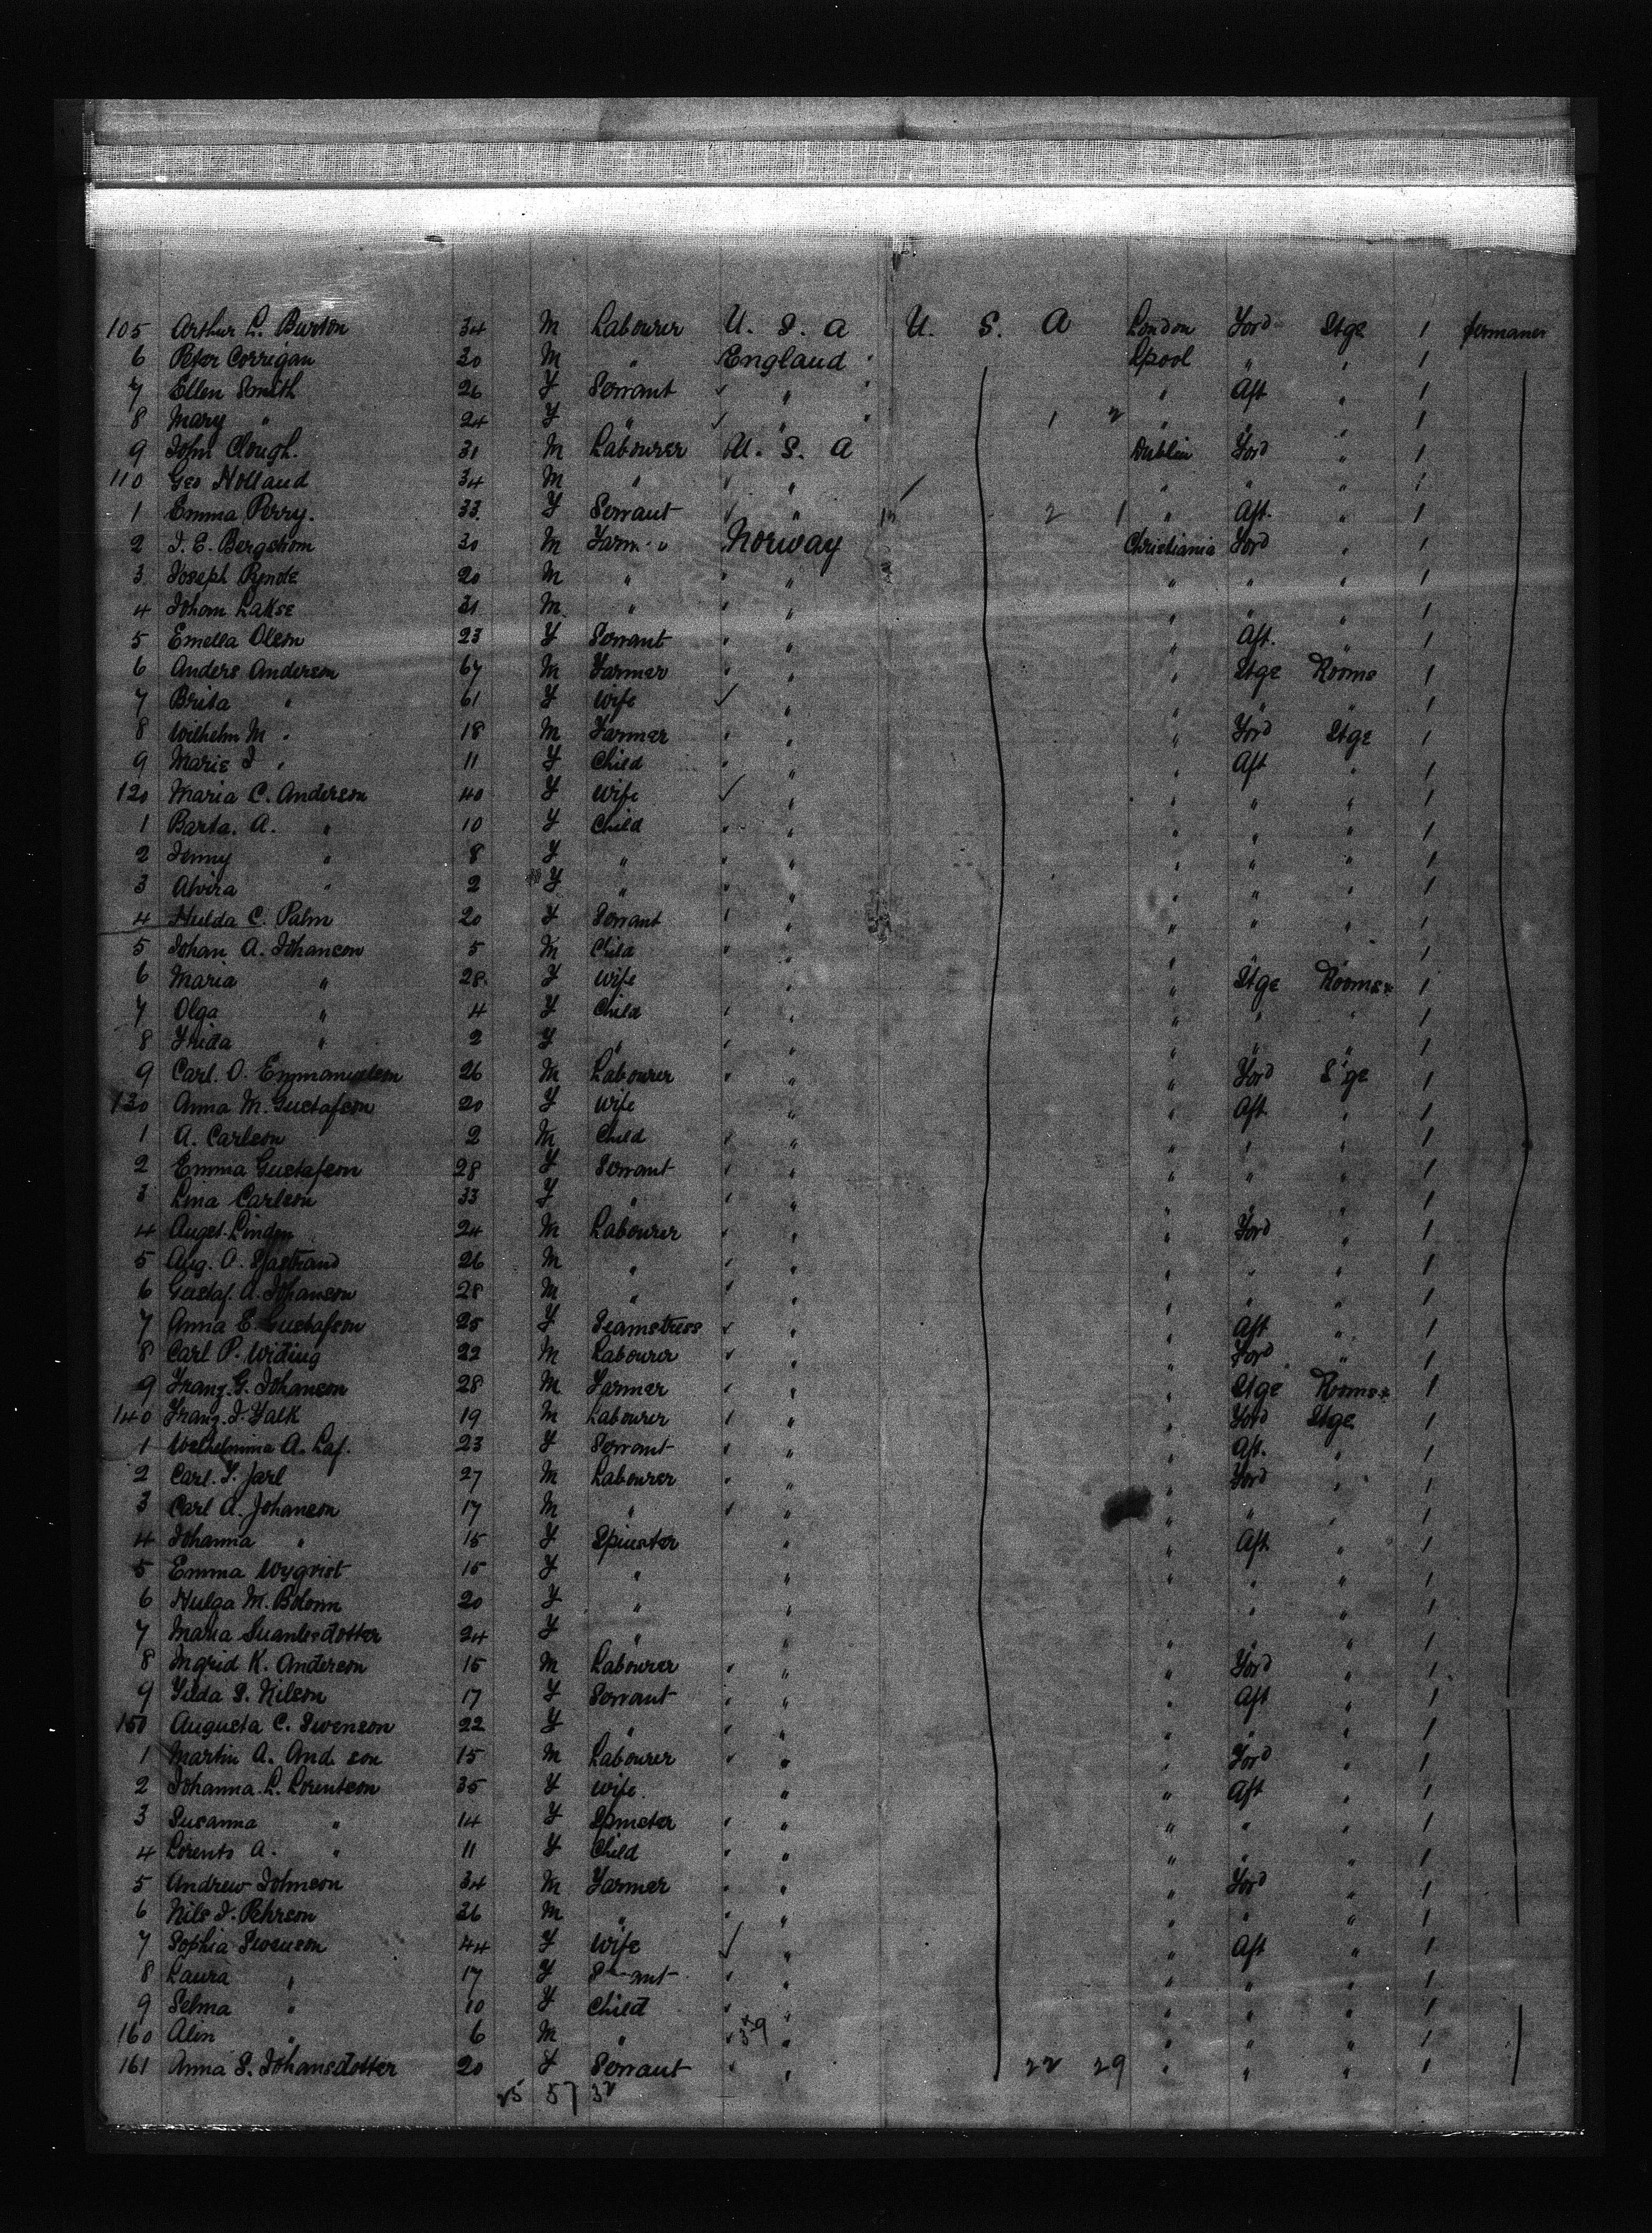 105 Arthur L. Burton 34 M Labourer U. S. A U. S. A London Ford Stge 1
6 Peter Corrigan 30 M " England Lpool " " 1
7 Ellen Smith 26 F Servant " " Aft " 1
8 Mary " 24 F " " 1 2 " " " 1
9 John Clough. 31 M Labourer U. S. A Dublin Ford " 1
110 Geo Holland 34 M " " " " " 1
1 Emma Perry. 33 F Servant " 2 1 " Aft. " 1
2 J. E. Bergstrom 30 M Farm Norway Christiania Ford " 1
3 Joseph 20 M " " " " " 1
4 Johan Lakse 31 M " " " " " 1
5 Emella Olson 23 F Servant " " Aft. " 1
6 Anders Anderson 67 M Farmer " " Stge Rooms 1
7 Brita " 61 F Wife " " " " 1
8 Wilhelm M " 18 M Farmer " " Ford Stge 1
9 Marie J " 11 F Child " " Aft " 1
120 Maria C. Anderson 40 F Wife " " " " 1
1 Barta. A. " 10 F Child " " " " 1
2 Jenny " 8 F " " " " " 1
3 Alvira " 2 F " " " " " 1
4 Hulda C. Palm 20 F Servant " " " " 1
5 Johan A. Johanson 5 M Child " " " " 1
6 Maria " 28 F Wife " " Stge Rooms 1
7 Olga " 4 F Child " " " " 1
8 Frida " 2 F " " " " " 1
9 Carl. O. Emmanuelson 26 M Labourer " " Ford Stge 1
130 Anna M. Gustafson 20 F Wife " " Aft. " 1
1 A. Carlson 2 M Child " " " " 1
2 Emma Gustafson 28 F Servant " " " " 1
3 Lina Carlson 33 F " " " " " 1
4 August Linden 24 M Labourer " " Ford " 1
5 Aug. O. 26 M " " " " " 1
6 Gustaf. A. Johanson 28 M " " " " " 1
7 Anna E. Gustafson 25 F Seamstress " " Aft " 1
8 Carl P. Widing 22 M Labourer " " Ford " 1
9 Franz. G. Johanson 28 M Farmer " " Stge Rooms 1
140 Franz. J. Falk 19 M Labourer " " Ford Stge 1
1 Wilhelmina A. 23 F Servant " " Aft. " 1
2 Carl. F. Jarl 27 M Labourer " " Ford " 1
3 Carl A. Johanson 17 M " " " " " 1
4 Johanna " 15 F Spinster " " Aft " 1
5 Emma 15 F " " " " " 1
6 Hulga M. 20 F " " " " " 1
7 Maria 24 F " " " " " 1
8 Ingrid K. Anderson 15 M Labourer " " Ford " 1
9 S. Nilson 17 F Servant " " Aft " 1
150 Augusta C. Swenson 22 F " " " " " 1
1 Martin A. And son 15 M Labourer " " Ford " 1
2 Johanna. L. Lorentson 35 F Wife. " " Aft " 1
3 Susanna " 14 F Spinster " " " " 1
4 Lorents A. " 11 F Child " " " " 1
5 Andrew Johnson 34 M Farmer " " Ford " 1
6 Nils J. Pehrson 36 M " " " " " 1
7 Sophia Swenson 44 F Wife " " Aft " 1
8 Laura " 17 F S ant " " " " 1
9 Selma " 10 F Child " " " " 1
160 Alin " 6 M " " " " " 1
161 Anna S. Johansdotter 20 F Servant " 22 29 " " " 1
57